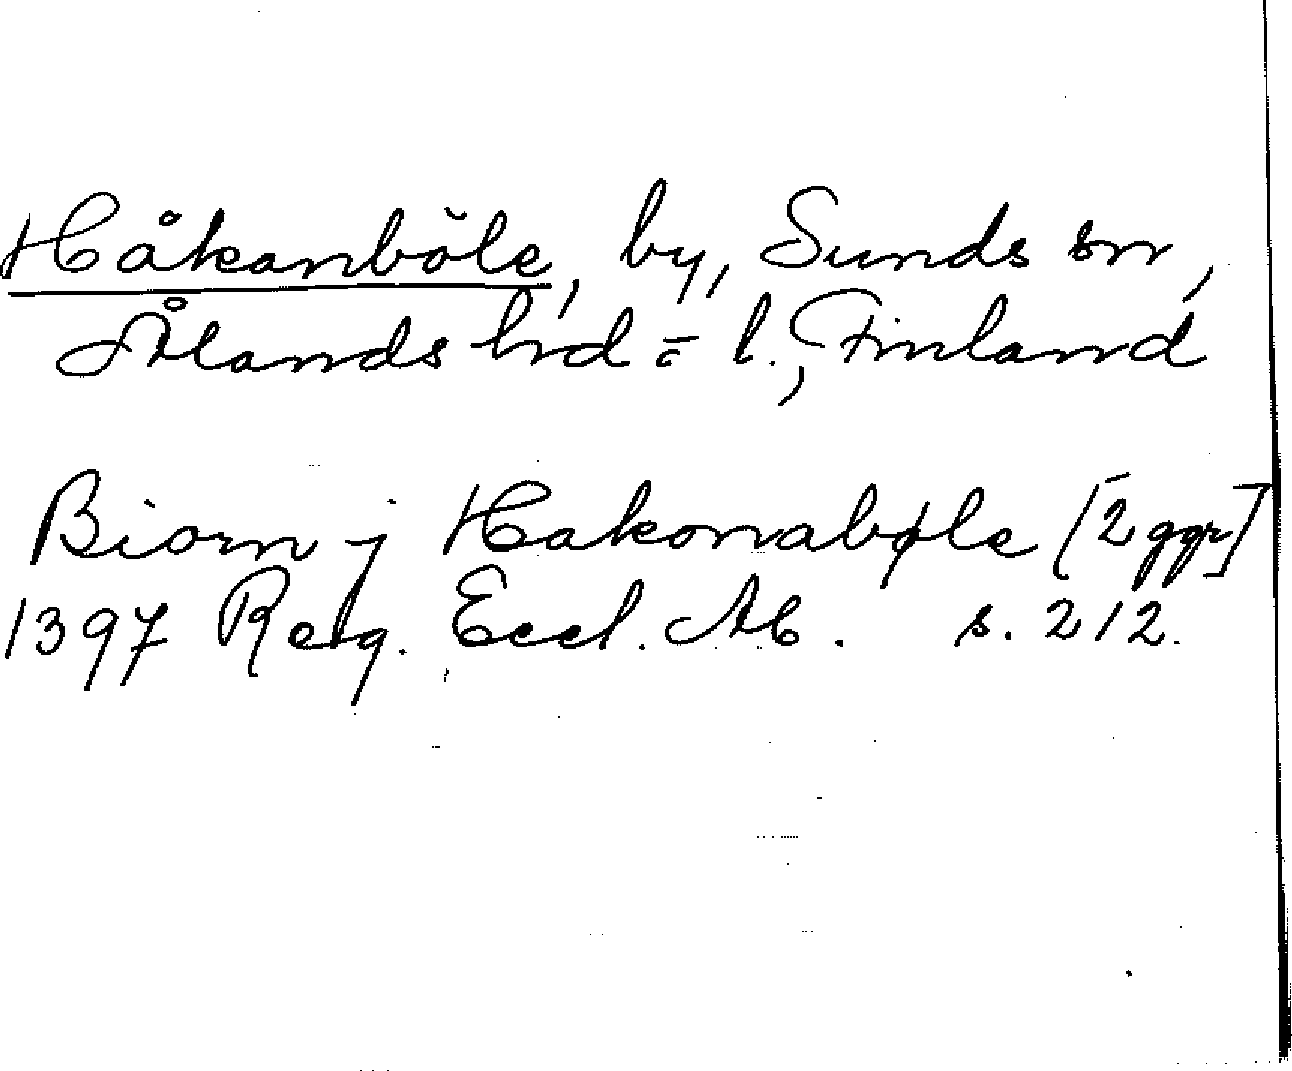 Håkanböle, by, Sunds sn,
Ålands hd = l., Finland
Biorn j Hakonabøle [2 ggr]
1397 Reg. Eccl. Ab. s. 212.